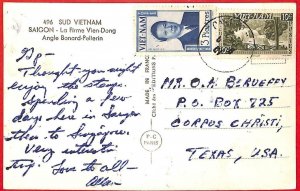 496 SUD VIETNAM
SAIGON - La Firme Vien-Dong
Angle Bonard-Pellerin
Thought you might
enjoy the stamps.
Spending a few
days here in Saigon
then to Singapore.
Very interesting
trip.
Love to all—
VIET-NAM
MADE IN FRANCE
P-C
PARIS
MR. O.A. BERUEFFY
P.O. BOX 725
CORPUS CHRISTI,
TEXAS, USA.